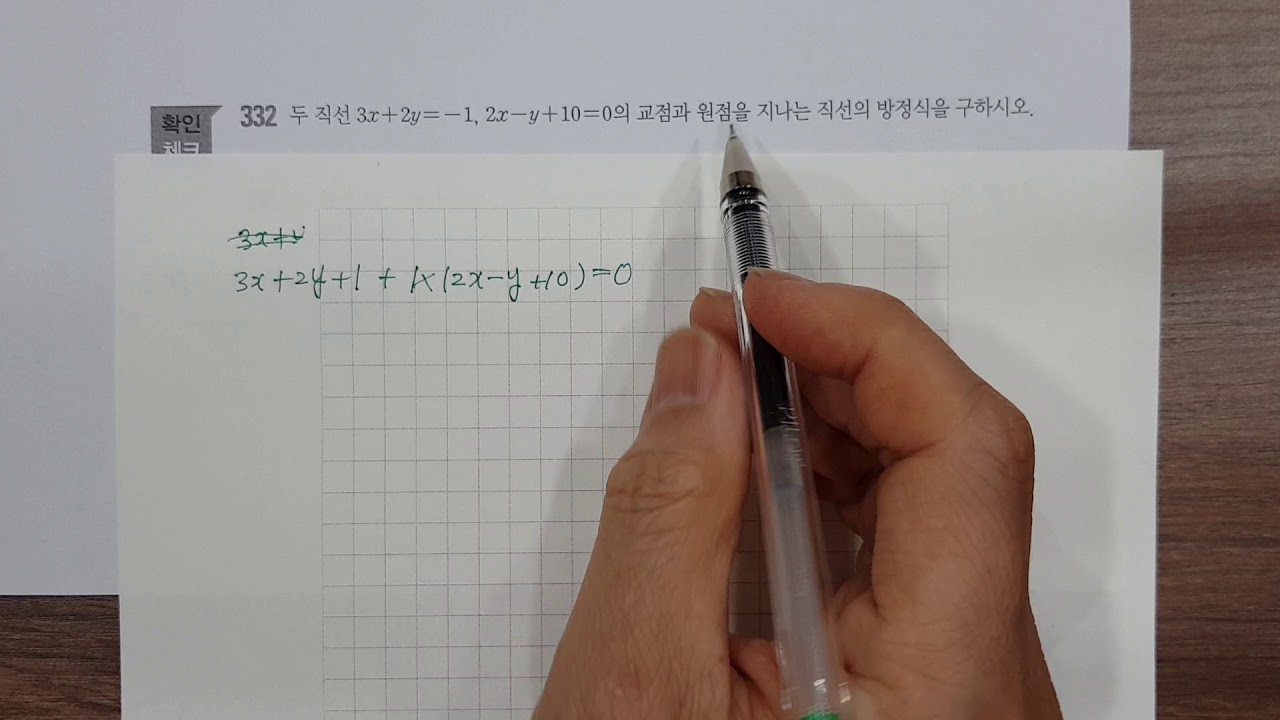 확인
체크
332 두 직선 3x+2y=-1, 2x-y+10=0의 교점과 원점을 지나는 직선의 방정식을 구하시오.
3x+2y+1 + k(2x-y+10)=0